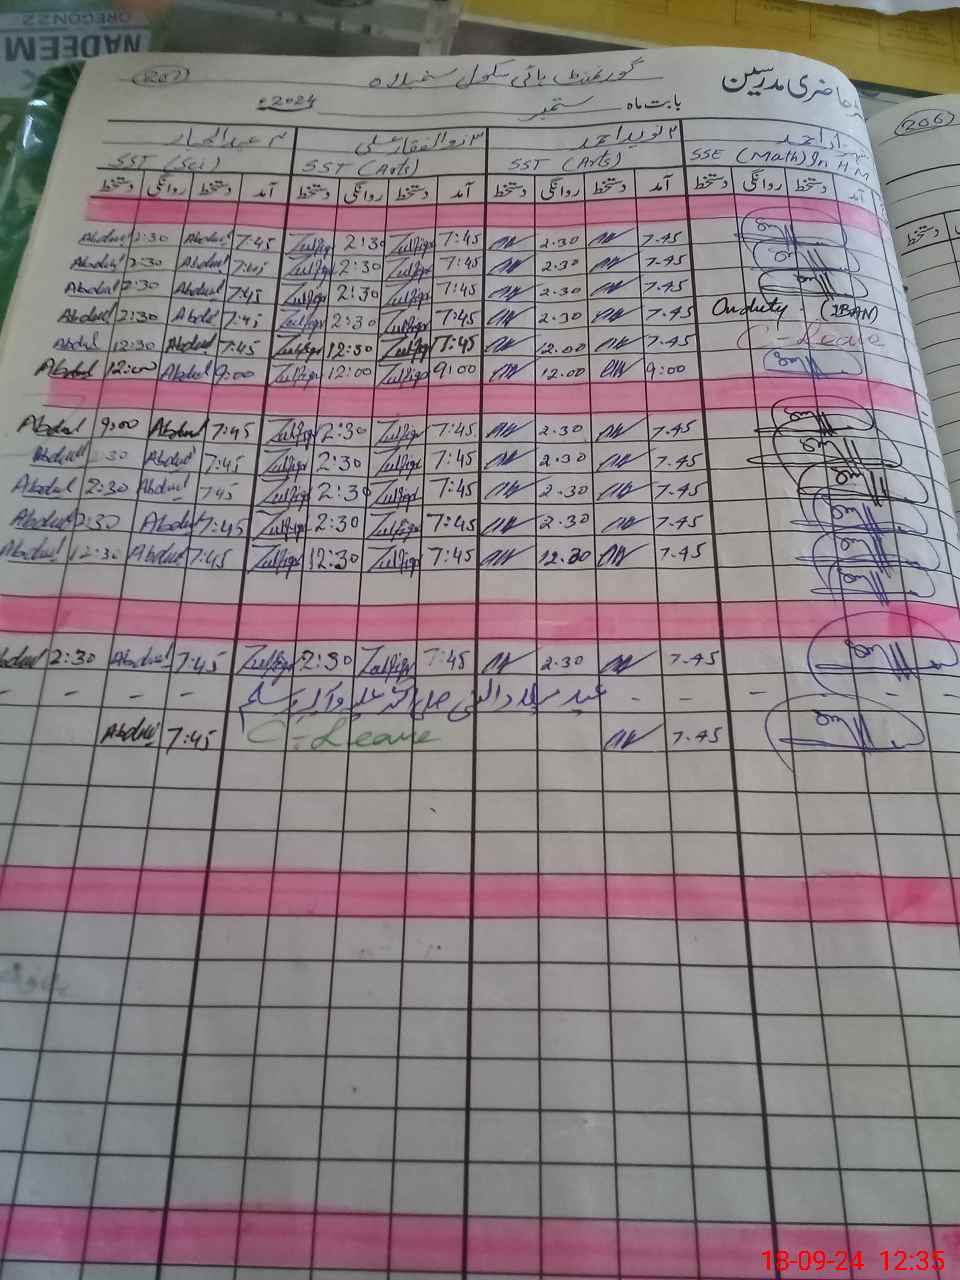 NADEEM
OREGON 22
حاضری مدرسین
گورنمنٹ ہائی سکول
207
206
بابت ماہ ستمبر 2024ء
احمد ۲ نوید احمد ۳ ذوالفقار علی ۴
SSE (Math) In H M SST (Arts) SST (Arts) SST (Sci)
آمد دستخط روانگی دستخط آمد دستخط روانگی دستخط آمد دستخط روانگی دستخط آمد دستخط روانگی دستخط
دستخط
Abdul 2:30 Abdul 7:45 Zulfiqr 2:30 Zulfiqr 7:45 2.30 7.45
Abdul 2:30 Abdul 7:45 Zulfiqr 2:30 Zulfiqr 7:45 2.30 7.45
Abdul 2:30 Abdul 7:45 Zulfiqr 2:30 Zulfiqr 7:45 2.30 7.45
Abdul 2:30 Abdul 7:45 Zulfiqr 2:30 Zulfiqr 7:45 2.30 7.45 On duty (IBAN)
Abdul 12:30 Abdul 7:45 Zulfiqr 12:30 Zulfiqr 7:45 12.00 7.45 C-Leave
Abdul 12:00 Abdul 9:00 Zulfiqr 12:00 Zulfiqr 9:00 12.00 9:00
Abdul 9:00 Abdul 7:45 Zulfiqr 2:30 Zulfiqr 7:45 2.30 7.45
Abdul :30 Abdul 7:45 Zulfiqr 2:30 Zulfiqr 7:45 2.30 7.45
Abdul 2:30 Abdul 7:45 Zulfiqr 2:30 Zulfiqr 7:45 2.30 7.45
Abdul 2:30 Abdul 7:45 Zulfiqr 2:30 Zulfiqr 7:45 2.30 7.45
Abdul 12:30 Abdul 7:45 Zulfiqr 12:30 Zulfiqr 7:45 12.30 7.45
Abdul 2:30 Abdul 7:45 Zulfiqr 2:30 Zulfiqr 7:45 2.30 7.45
- - - - عید میلاد النبی صلی اللہ علیہ وآلہ وسلم - - - - - -
Abdul 7:45 C-Leave 7.45
18-09-24 12:35